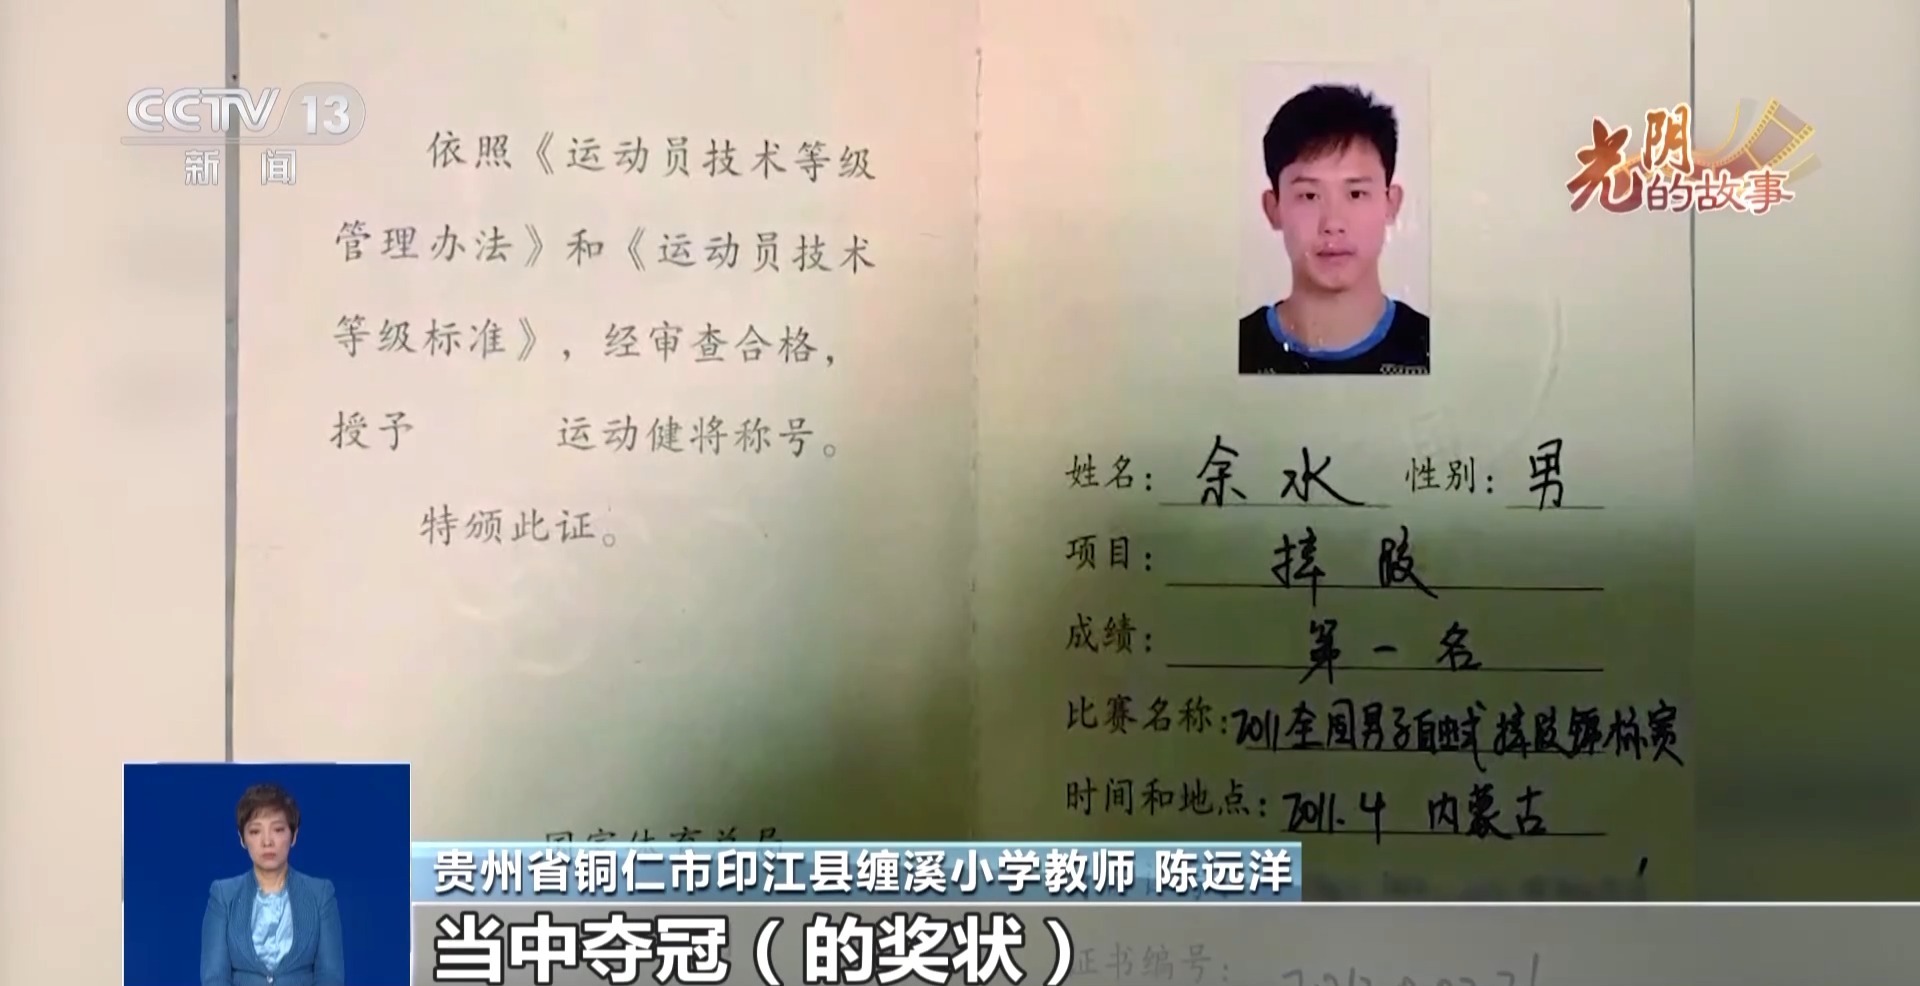 CCTV 13
新闻
光阴的故事
依照《运动员技术等级
管理办法》和《运动员技术
等级标准》，经审查合格，
授予 运动健将称号。
特颁此证。
姓名：余水 性别：男
项目：摔跤
成绩：第一名
比赛名称：2011全国男子自由式摔跤锦标赛
时间和地点：2011.4 内蒙古
国家体育总局
贵州省铜仁市印江县缠溪小学教师 陈远洋
当中夺冠（的奖状）
证书编号：